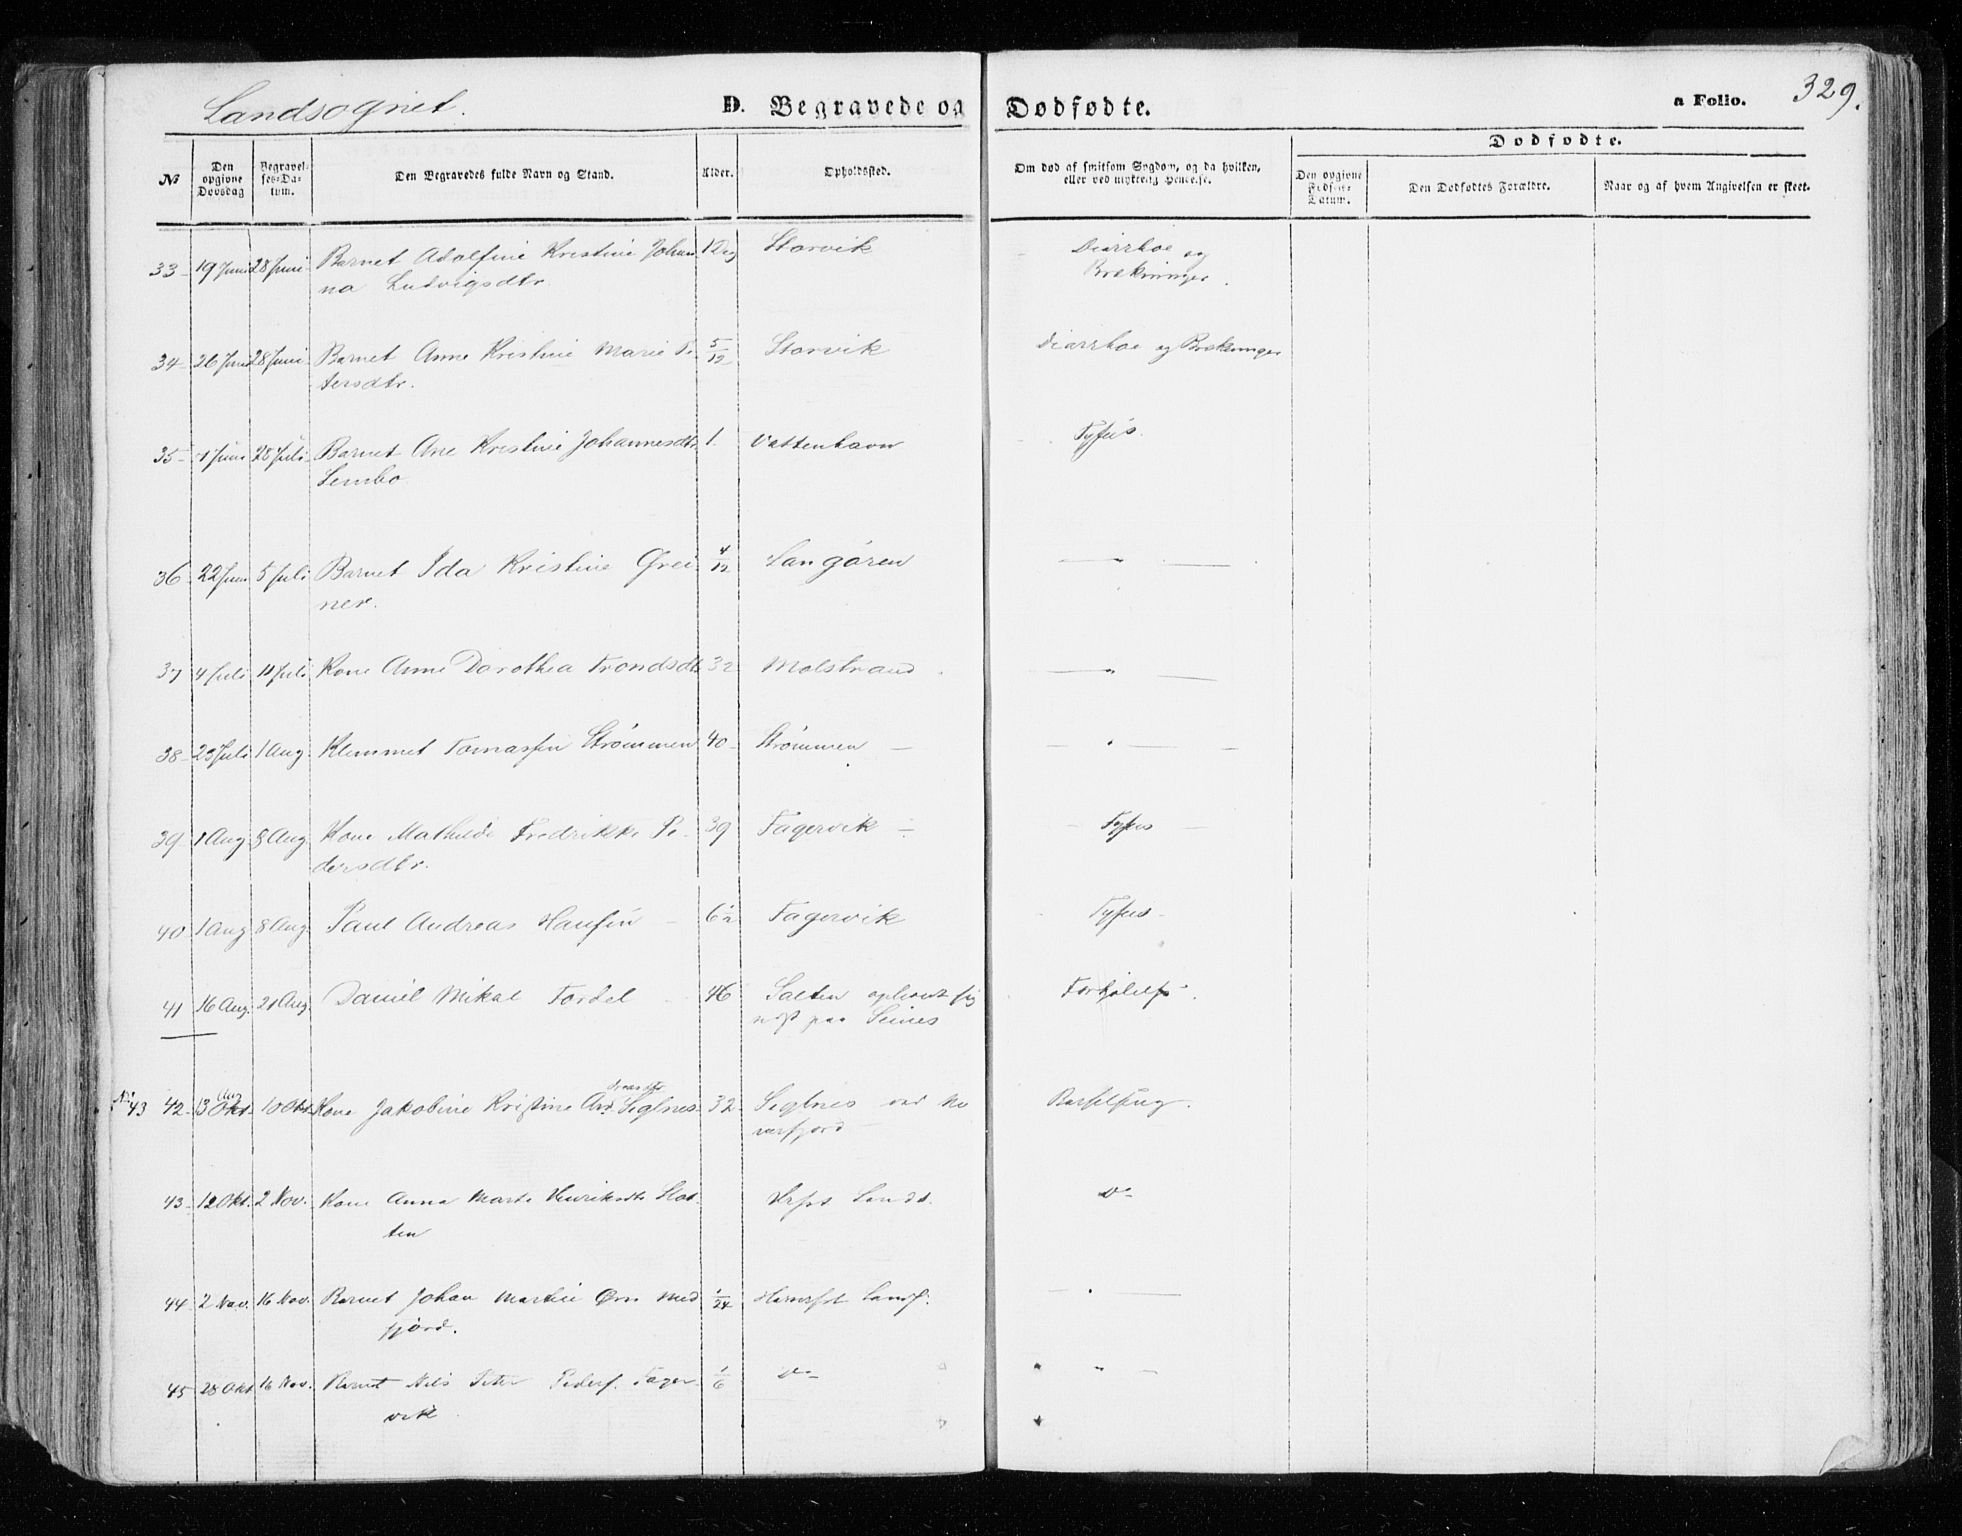 Landsognet.
D. Begravede og Dødfødte.
a Folio. 329.
No
Den opgivne Dødsdag
Begravelses-Datum.
Den Begravedes fulde Navn og Stand.
Alder.
Opholdssted.
Om død af smitsom Sygdom, og da hvilken, eller ved ulykkelig Hændelse.
Dødfødte.
Den opgivne Fødsels-Datum.
Den Dødfødtes Forældre.
Naar og af hvem Angivelsen er skeet.
33 19 Juni 28 Juni Barnet Adolfine Kristine Johan- Storvik Diarrhoe og
na Ludvigsdtr. Brekninger.
34 26 Juni 28 Juni Barnet Anne Kristine Marie Pe- 5/12 Storvik Diarrhoe og Brekninger
tersdtr.
35 Juni 28 Juli Barnet Ane Kristine Johannesdtr 1. Vattenhavn Tyfus.
Sembo
36 22 Juni 5 Juli Barnet Ida Kristine Grei 4/12 Langøren — —
ner.
37 4 Juli 11 Juli Kone Anne Dorothea Trondsdtr 32 Molstrand — —
38 23 Juli 1 Aug Klemmet Tomassen Strømmen 40 Strømmen — — —
39 1 Aug 8 Aug Kone Mathilde Fredrikke Pe- 39 Fagervik — Tyfus —
dersdtr.
40 1 Aug 8 Aug Paul Andreas Hansen 62 Fagervik Tyfus
41 16 Aug. 21 Aug. Daniel Mikal Fordel 46 Salten opholdt sig Forkjølelse.
paa Seines
Aug dreasdtr
No 43 42 13 Okt. 10 Okt. Kone Jakobine Kristine And Seglnes 32 Seglnes ved Barselseng.
43 12 Okt. 2 Nov. Kone Anna Marte Henriksdtr Slot- Hfst Lands. Do
ten
44 2 Nov. 16 Nov. Barnet Johan Martin Med 1/24 Hamrfst Lands. - . —
fjord.
45 28 Okt 16 Nov. Barnet Nils Peter Peders. Fager- 1/6 Do
vik